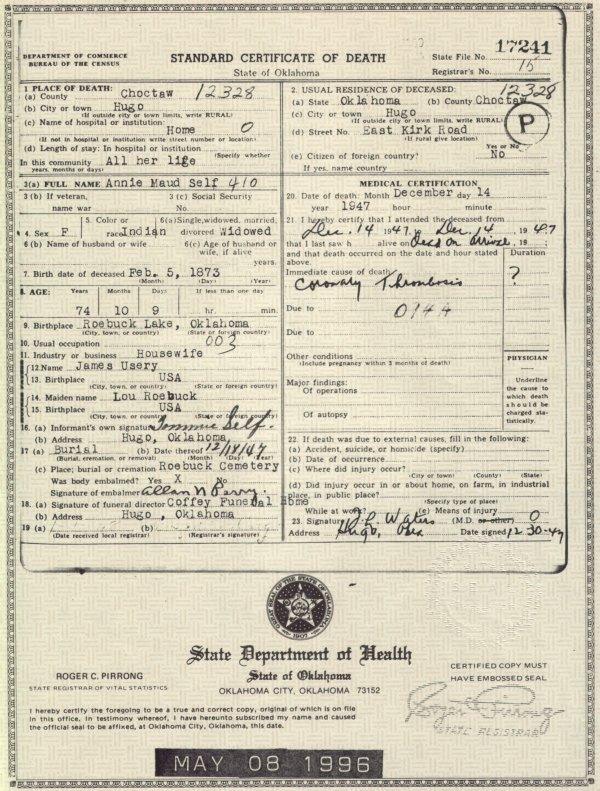 DEPARTMENT OF COMMERCE
BUREAU OF THE CENSUS
STANDARD CERTIFICATE OF DEATH
State of Oklahoma
17241
State File No.
Registrar's No. 15
1 PLACE OF DEATH:
(a) County Choctaw 12328
(b) City or town Hugo
(If outside city or town limits, write RURAL)
(c) Name of hospital or institution:
Home 0
(If not in hospital or institution write street number or location)
(d) Length of stay: In hospital or institution
(Specify whether
In this community All her life
years, months or days)
2. USUAL RESIDENCE OF DECEASED: 12328
(a) State Oklahoma (b) County Choctaw
(c) City or town Hugo
(If outside city or town limits, write RURAL)
P
(d) Street No. East Kirk Road
(If rural give location)
Yes or No
(e) Citizen of foreign country? No
If yes, name country
3(a) FULL NAME Annie Maud Self 410
3 (b) If veteran, 3 (c) Social Security
name war No.
4. Sex F 5. Color or race Indian 6(a)Single, widowed, married, divorced Widowed
6 (b) Name of husband or wife 6(c) Age of husband or wife, if alive
years.
7. Birth date of deceased Feb. 5, 1873
(Month) (Day) (Year)
8. AGE: Years Months Days If less than one day
74 10 9 hr. min.
9. Birthplace Roebuck Lake, Oklahoma
(City, town, or county) (State or foreign country)
10. Usual occupation 003
11. Industry or business Housewife
12. Name James Usery
13. Birthplace USA
(City, town, or county) (State or foreign country)
14. Maiden name Lou Roebuck
15. Birthplace USA
(City, town, or county) (State or foreign country)
16. (a) Informant's own signature Tommie Self.
(b) Address Hugo, Oklahoma
17 (a) Burial (b) Date thereof 12/18/47
(Burial, cremation, or removal) (Month) (Day) (Year)
(c) Place; burial or cremation Roebuck Cemetery
Was body embalmed? Yes X No
Signature of embalmer Allan N Perry.
18. (a) Signature of funeral director Coffey Funeral Home
(b) Address Hugo, Oklahoma
19 (a) (b)
(Date received local registrar) (Registrar's signature)
MEDICAL CERTIFICATION
20. Date of death: Month December day 14
year 1947 hour minute
21. I hereby certify that I attended the deceased from
Dec. 14 1947, to Dec. 14, 1947
that I last saw h alive on Dead on arrival, 19 ;
and that death occurred on the date and hour stated above.
Duration
Immediate cause of death
Coronary Thrombosis ?
Due to 014A
Due to
Other conditions
(Include pregnancy within 3 months of death)
PHYSICIAN
Major findings:
Of operations
Of autopsy
Underline the cause to which death should be charged statistically.
22. If death was due to external causes, fill in the following:
(a) Accident, suicide, or homicide (specify)
(b) Date of occurrence
(c) Where did injury occur?
(City or town) (County) (State)
(d) Did injury occur in or about home, on farm, in industrial
place, in public place?
(Specify type of place)
While at work? (e) Means of injury
23. Signature Waters (M.D. or other) 0
Address Hugo, Okla Date signed 12-30-47
GREAT SEAL OF THE STATE OF OKLAHOMA
1907
State Department of Health
State of Oklahoma
OKLAHOMA CITY, OKLAHOMA 73152
ROGER C. PIRRONG
STATE REGISTRAR OF VITAL STATISTICS
CERTIFIED COPY MUST
HAVE EMBOSSED SEAL
I hereby certify the foregoing to be a true and correct copy, original of which is on file
in this office. In testimony whereof, I have hereunto subscribed my name and caused
the official seal to be affixed, at Oklahoma City, Oklahoma, this date.
Roger Pirrong
STATE REGISTRAR
MAY 08 1996